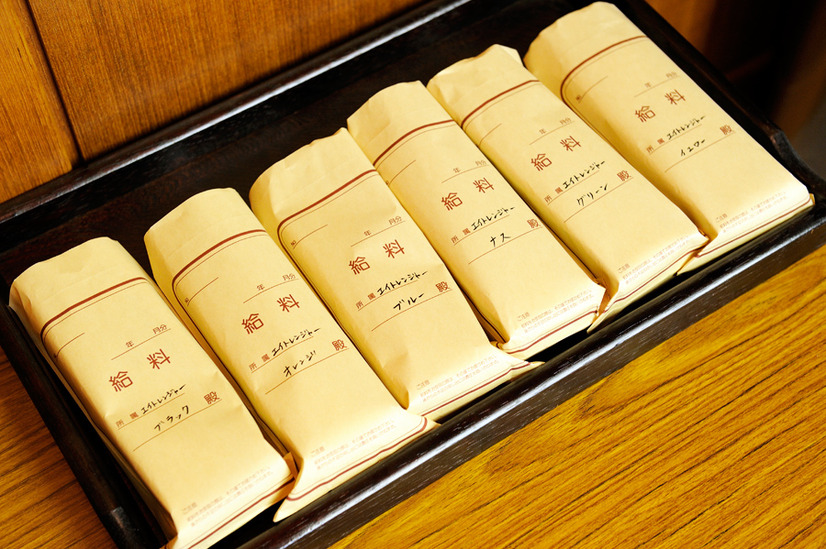 年 月分
給料
所属 エイトレンジャー
ブラック 殿
年 月分
給料
所属 エイトレンジャー
オレンジ 殿
No.
年 月分
給料
所属 エイトレンジャー
ブルー 殿
年 月分
給料
所属 エイトレンジャー
ナス 殿
年 月分
給料
所属 エイトレンジャー
グリーン 殿
年 月分
給料
所属 エイトレンジャー
イエロー 殿